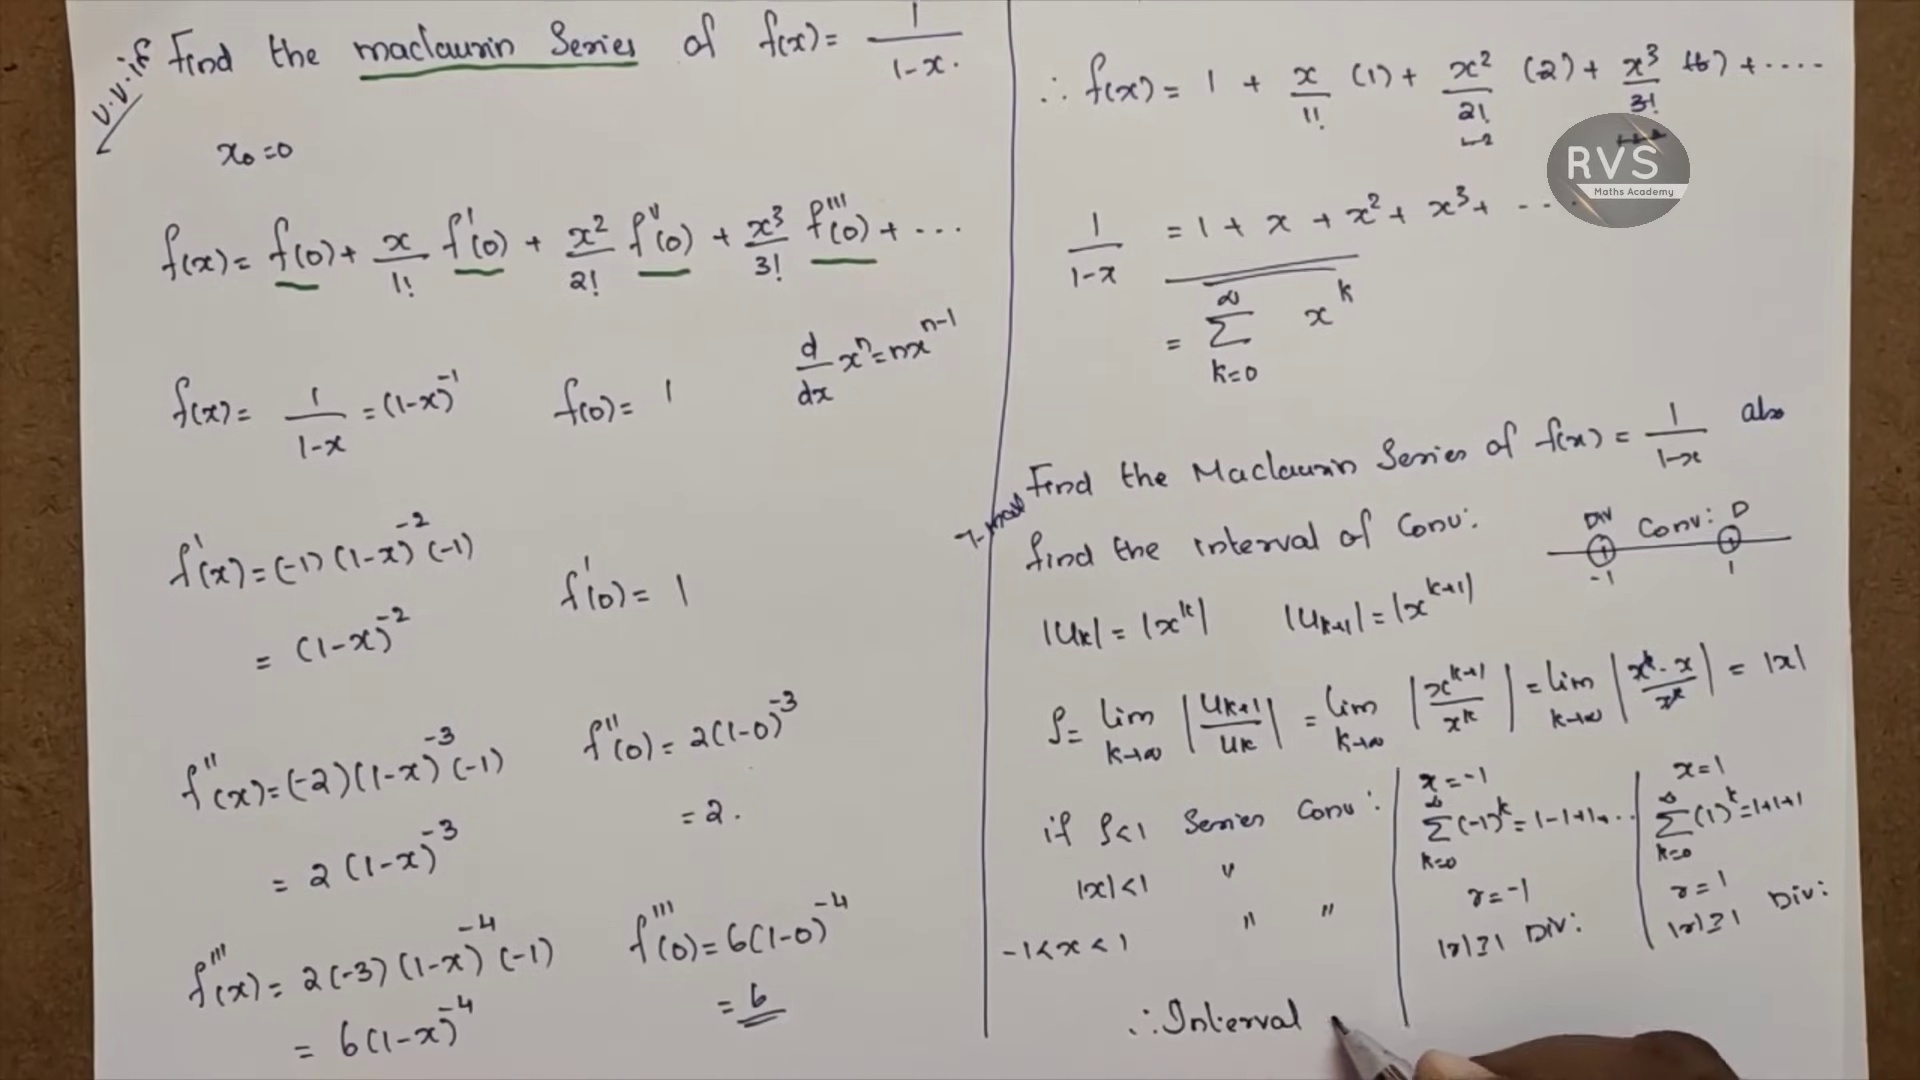 V.V.if Find the maclaurin Series of f(x) = 1/1-x.
x₀=0
f(x) = f(0) + x/1! f'(0) + x²/2! f''(0) + x³/3! f'''(0) + ...
d/dx xⁿ = nxⁿ⁻¹
f(x) = 1/1-x = (1-x)⁻¹ f(0) = 1
f'(x) = (-1)(1-x)⁻²(-1)
= (1-x)⁻² f'(0) = 1
f''(x) = (-2)(1-x)⁻³(-1) f''(0) = 2(1-0)⁻³
= 2(1-x)⁻³ = 2.
f'''(x) = 2(-3)(1-x)⁻⁴(-1) f'''(0) = 6(1-0)⁻⁴
= 6(1-x)⁻⁴ = 6
∴ f(x) = 1 + x/1! (1) + x²/2! (2) + x³/3! (6) + ....
RVS
Maths Academy
1/1-x = 1 + x + x² + x³ + ...
= ∞ Σ k=0 xᵏ
Find the Maclaurin Series of f(x) = 1/1-x also
find the interval of Conv:
Div Conv: D
-1 1
|Uk| = |xᵏ| |Uk+1| = |xᵏ⁺¹|
ρ = lim k→∞ |Uk+1/Uk| = lim k→∞ |xᵏ⁺¹/xᵏ| = lim k→∞ |xᵏ·x/xᵏ| = |x|
if ρ<1 Series Conv:
|x|<1 "
-1<x<1 " "
x=-1
∞ Σ k=0 (-1)ᵏ = 1-1+1+...
r=-1
|r|≥1 Div:
x=1
∞ Σ k=0 (1)ᵏ = 1+1+1
r=1
|r|≥1 Div:
∴ Interval